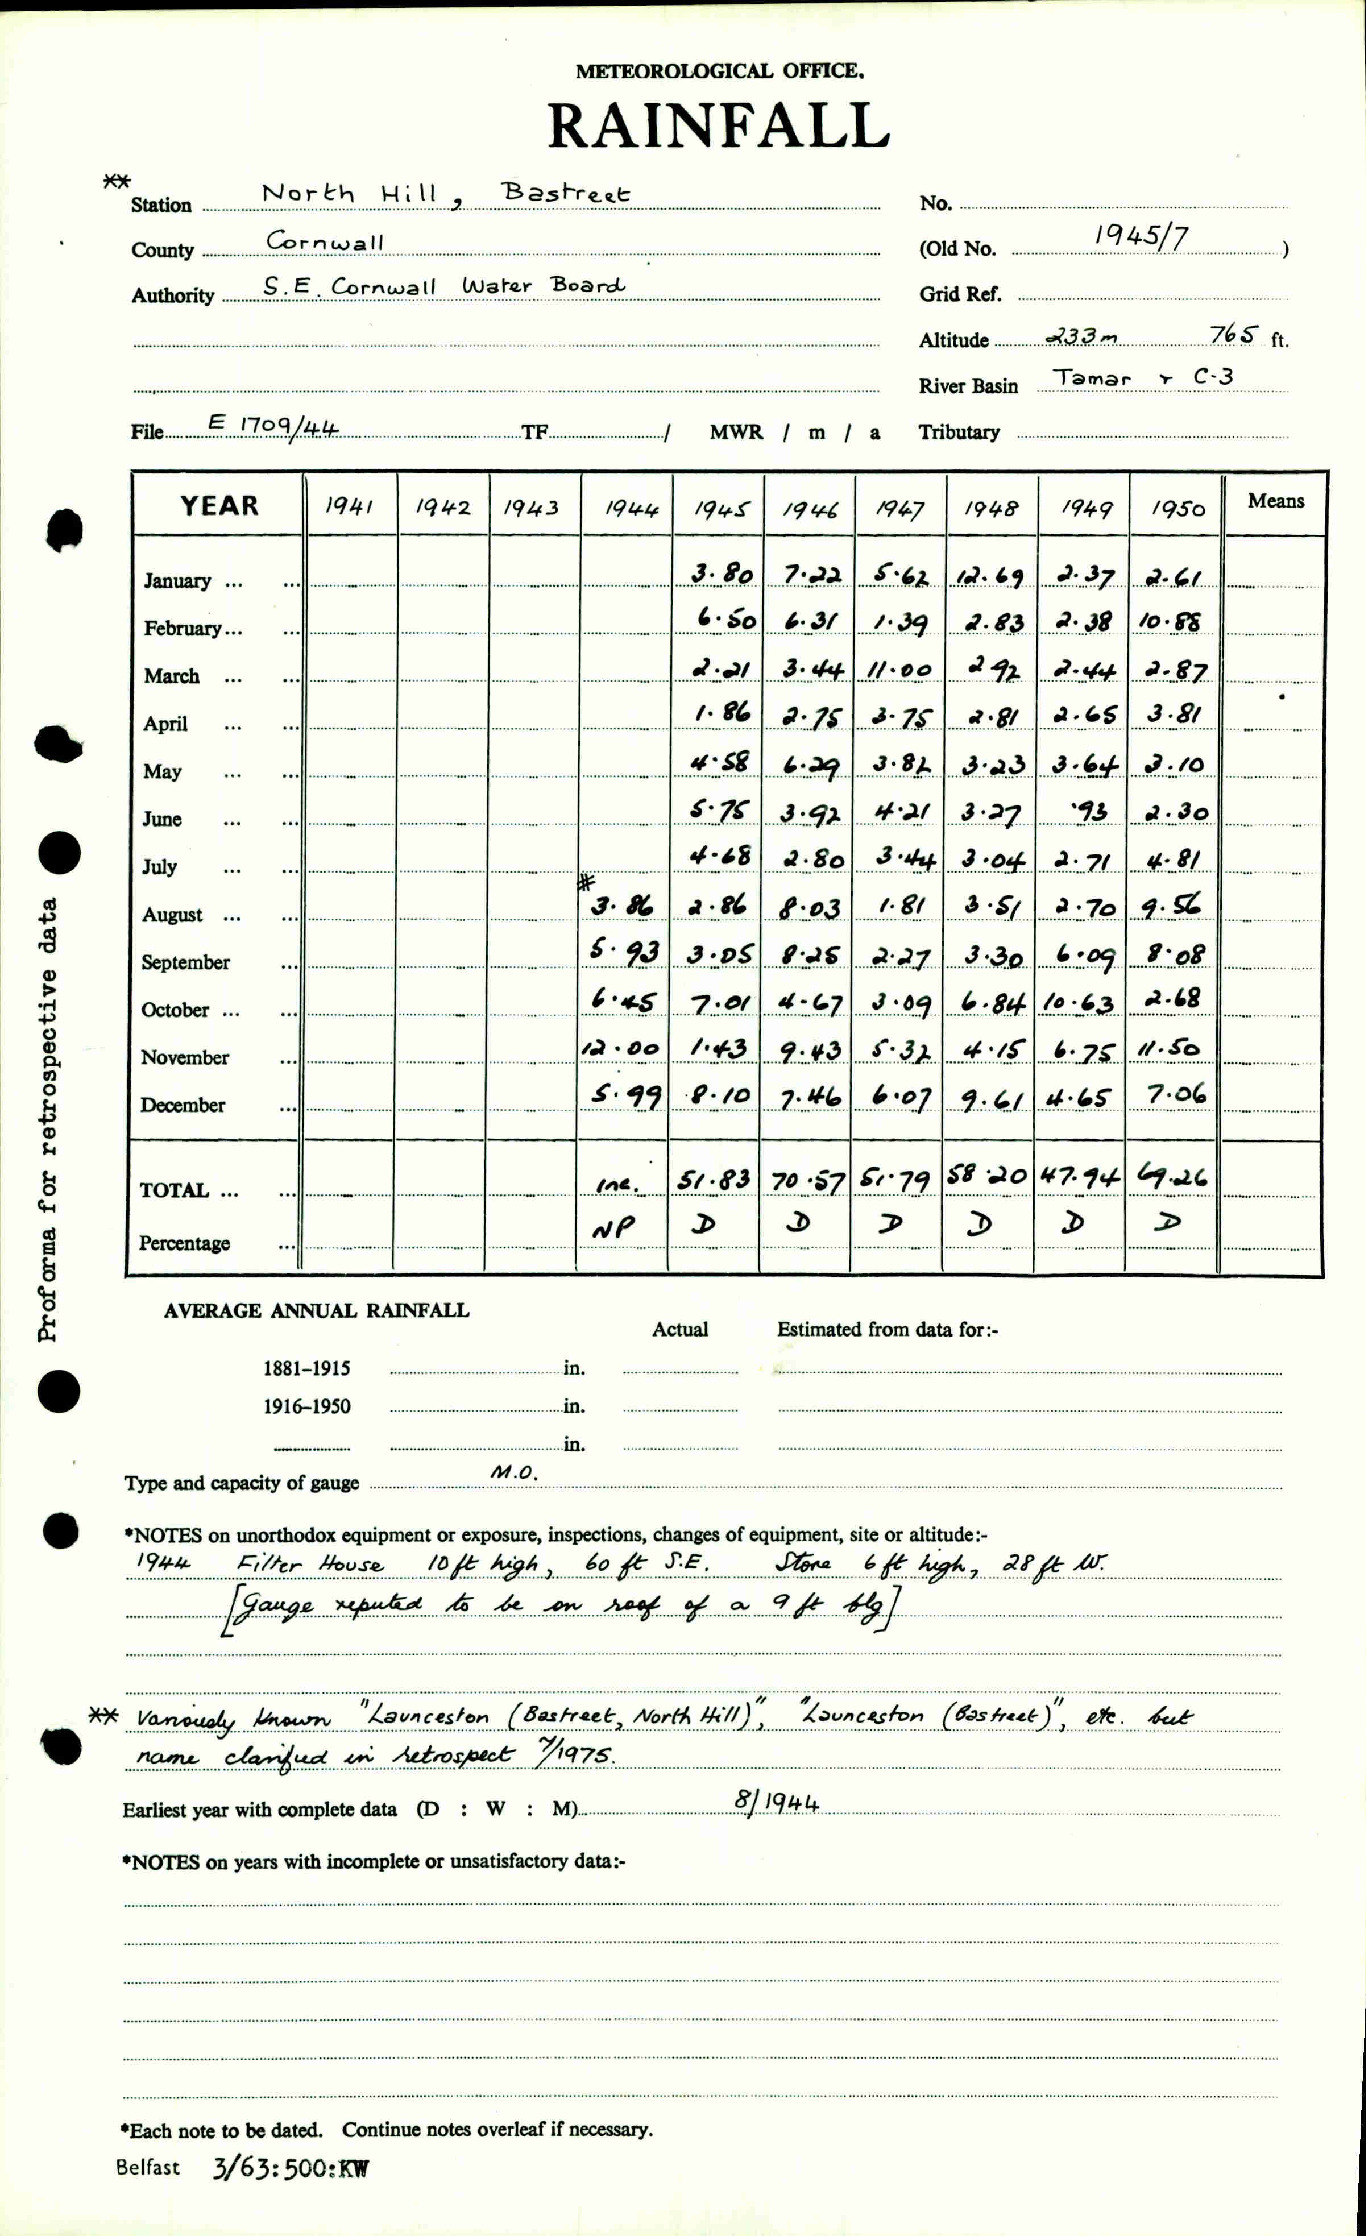 METEOROLOGICAL OFFICE.
RAINFALL
** Station North Hill, Bastreet No.
County Cornwall (Old No. 1945/7 )
Authority S.E. Cornwall Water Board Grid Ref.
Altitude 233m 765 ft.
River Basin Tamar r C-3
File E 1709/44 TF / MWR / m / a Tributary
YEAR 1941 1942 1943 1944 1945 1946 1947 1948 1949 1950 Means
January ... ... 3.80 7.22 5.62 12.69 2.37 2.61
February... ... 6.50 6.31 1.39 2.83 2.38 10.88
March ... ... 2.21 3.44 11.00 2.92 2.44 2.87
April ... ... 1.86 2.75 3.75 2.81 2.65 3.81
May ... ... 4.58 6.29 3.82 3.23 3.64 3.10
June ... ... 5.75 3.92 4.21 3.27 .93 2.30
July ... ... 4.68 2.80 3.44 3.04 2.71 4.81
August ... ... # 3.86 2.86 8.03 1.81 3.51 2.70 9.56
September ... 5.93 3.05 8.25 2.27 3.30 6.09 8.08
October ... ... 6.45 7.01 4.67 3.09 6.84 10.63 2.68
November ... 12.00 1.43 9.43 5.32 4.15 6.75 11.50
December ... 5.99 8.10 7.46 6.07 9.61 4.65 7.06
TOTAL ... ... inc. 51.83 70.57 51.79 58.20 47.94 69.26
Percentage ... NP D D D D D D
Proforma for retrospective data
AVERAGE ANNUAL RAINFALL
Actual Estimated from data for:-
1881–1915 in.
1916–1950 in.
in.
Type and capacity of gauge M.O.
*NOTES on unorthodox equipment or exposure, inspections, changes of equipment, site or altitude:-
1944 Filter House 10 ft high, 60 ft S.E. Store 6 ft high, 28 ft W.
[Gauge reputed to be on roof of a 9 ft blg]
** Variously known "Launceston (Bastreet, North Hill)", "Launceston (Bastreet)", etc. but
name clarified in retrospect 7/1975.
Earliest year with complete data (D : W : M) 8/1944
*NOTES on years with incomplete or unsatisfactory data:-
*Each note to be dated. Continue notes overleaf if necessary.
Belfast 3/63:500:KW